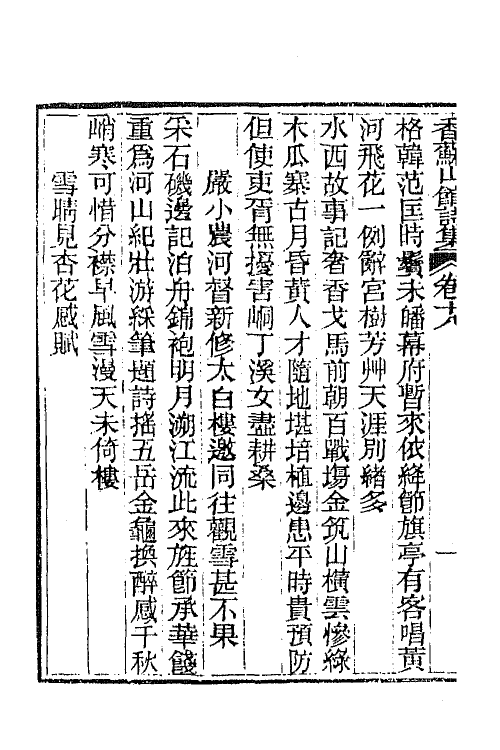 香蘇山館詩集 卷十八 一
格韓范匡時鬢未皤幕府暫來依絳節旗亭有客唱黃
河飛花一例辭宮樹芳艸天涯別緒多
水西故事記奢香戈馬前朝百戰塲金筑山橫雲慘綠
木瓜寨古月昏黃人才隨地堪培植邊患平時貴預防
但使吏胥無擾害峒丁溪女盡耕桑
嚴小農河督新修太白樓邀同往觀雪甚不果
采石磯邊記泊舟錦袍明月溯江流此來旌節承華餞
重爲河山紀壯游綵筆題詩搖五岳金龜換醉感千秋
峭寒可惜分襟早風雪漫天未倚樓
雪晴見杏花感賦